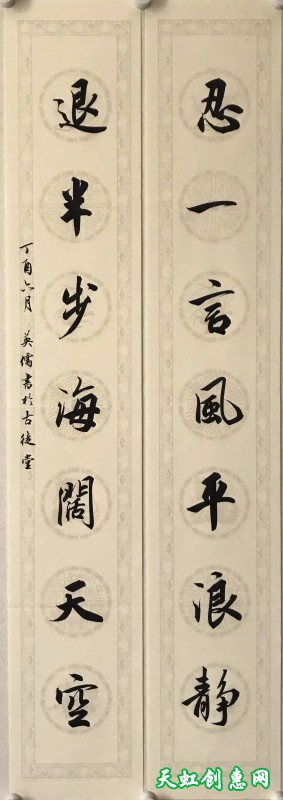 忍一言風平浪静
退半步海闊天空
丁酉六月 英儒書於古徒堂
天虹创惠网